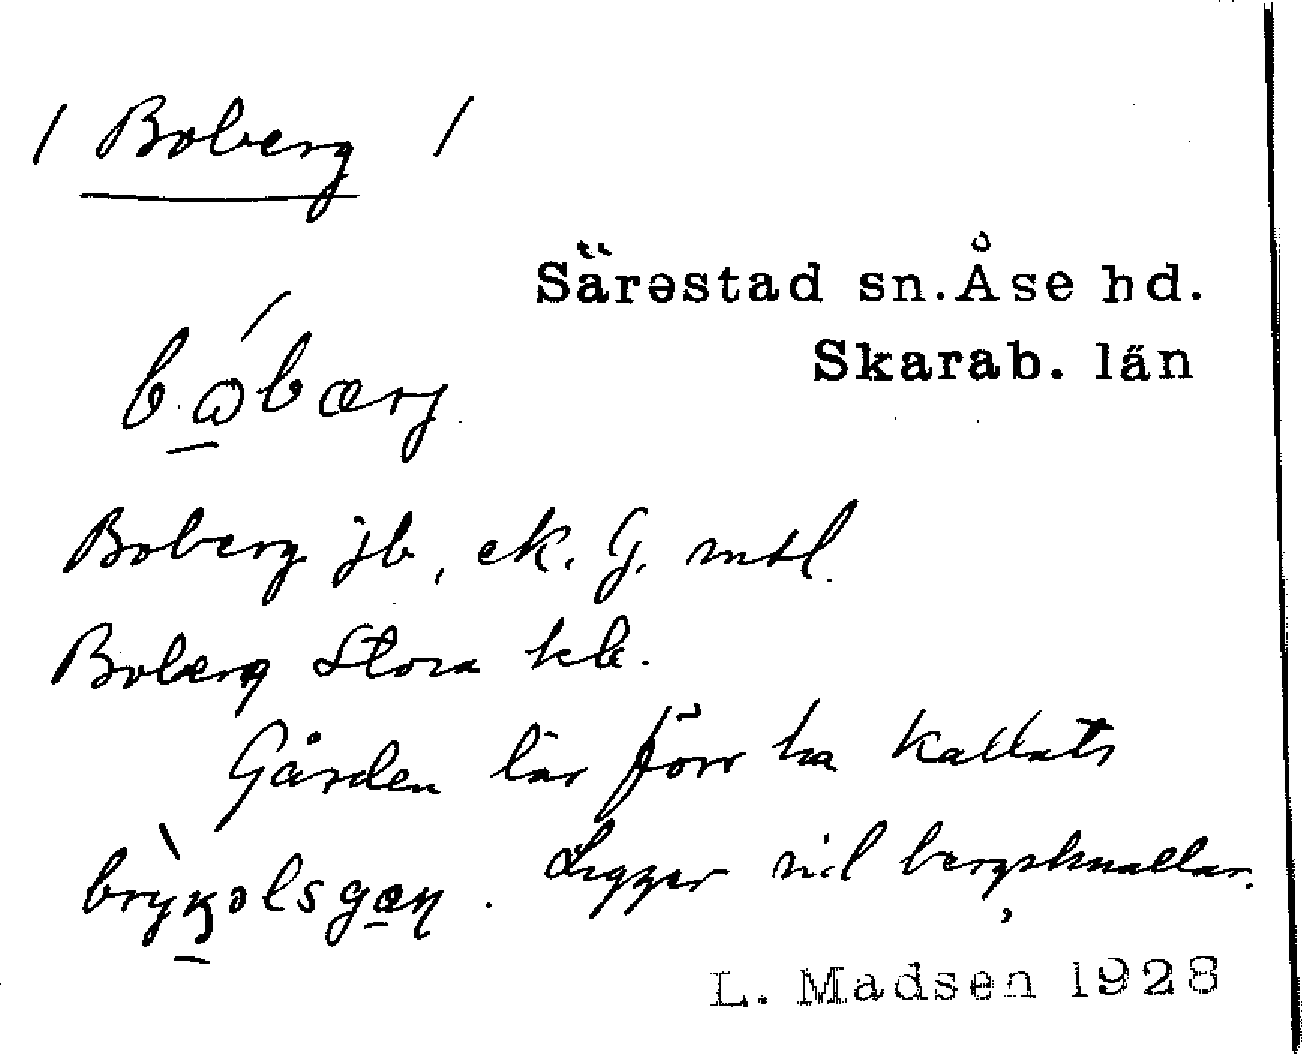 / Boberg /
Särəstad sn. Åse hd.
Skarab. län
bɷ́bærj
Boberg jb, ek. G. mtl.
Boberg Stora kb.
Gården lär förr ha kallats
Ligger vid bergknallar.
L. Madsen 1928